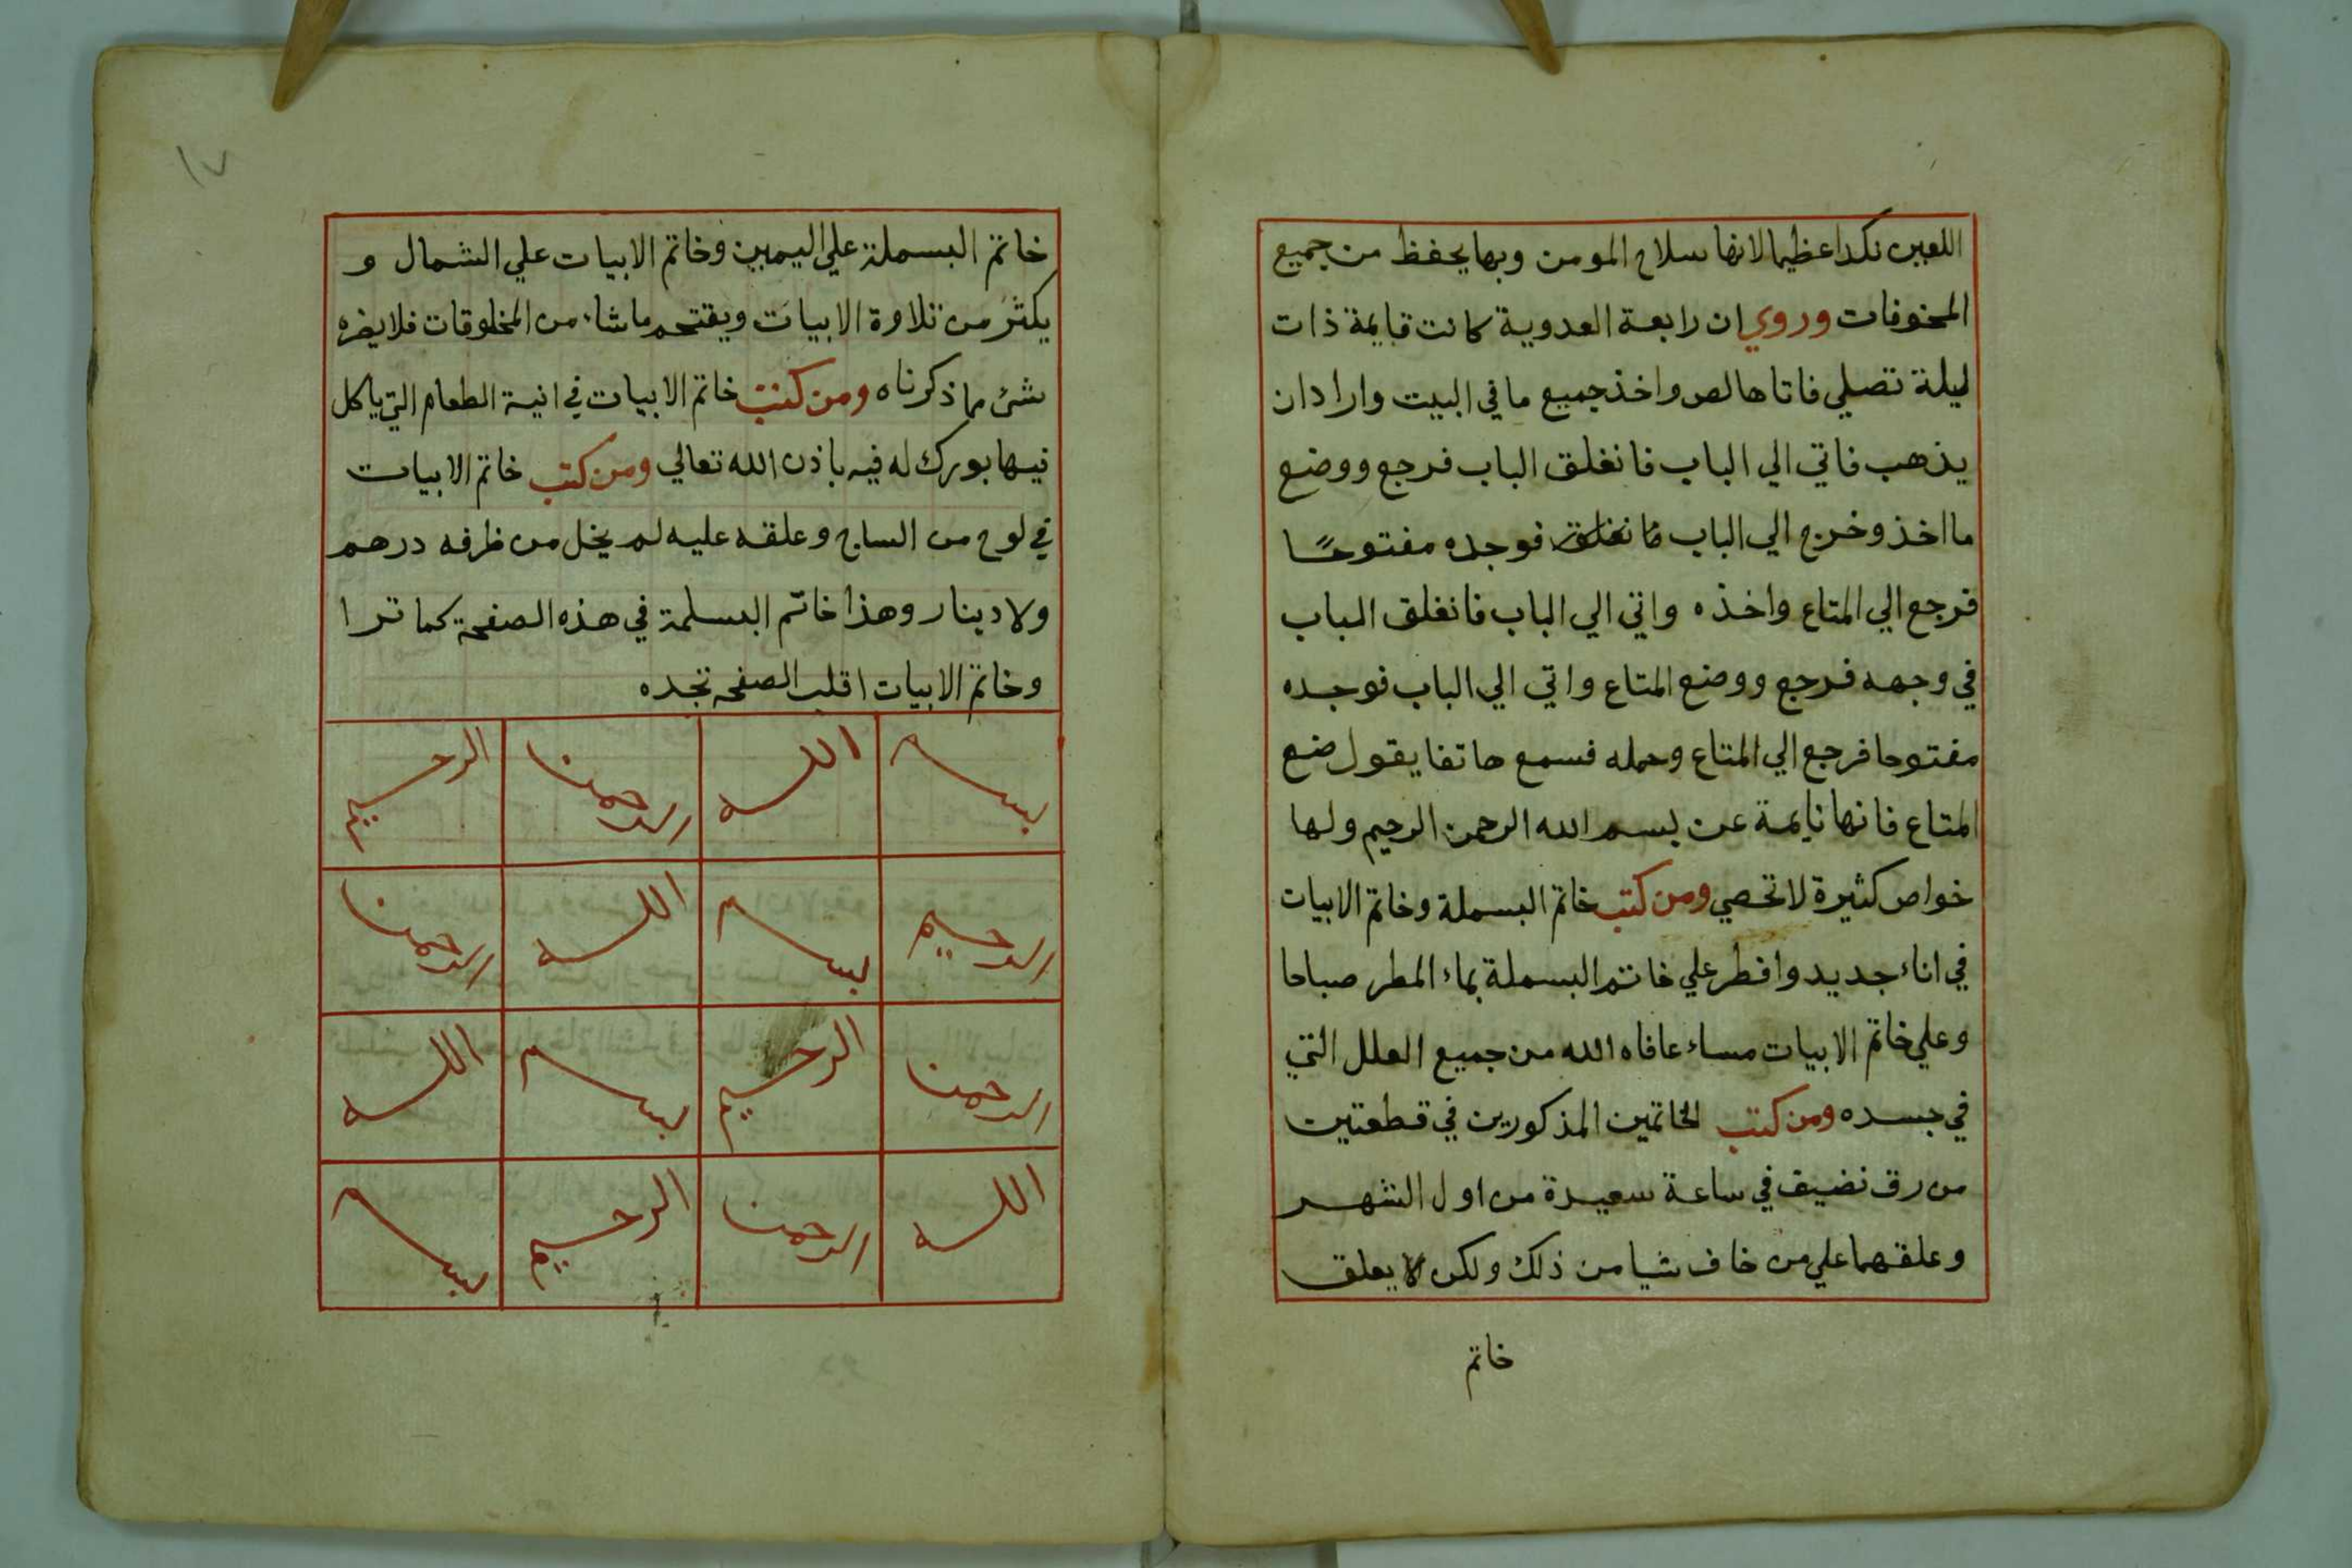 اللعين نكدا عظيما لانها سلاح المومن وبها يحفظ من جميع
المخوفات وروي ان رابعة العدوية كانت قايمة ذات
ليلة تصلي فاتاها لص واخذ جميع ما في البيت واراد ان
يذهب فاتي الي الباب فانغلق الباب فرجع ووضع
ما اخذ وخرج الي الباب فانغلق فوجده مفتوحًا
فرجع الي المتاع واخذه واتي الي الباب فانغلق الباب
في وجهه فرجع ووضع المتاع واتي الي الباب فوجده
مفتوحا فرجع الي المتاع وحمله فسمع هاتفا يقول ضع
المتاع فانها نايمة عن بسم الله الرحمن الرحيم ولها
خواص كثيرة لا تحصي ومن كتب خاتم البسملة وخاتم الابيات
في اناء جديد وافطر علي خاتم البسملة بماء المطر صباحا
وعلي خاتم الابيات مساء عافاه الله من جميع العلل التي
في جسده ومن كتب الخاتمين المذكورين في قطعتين
من رق نضيف في ساعة سعيدة من اول الشهر
وعلقهما علي من خاف شيا من ذلك ولكن لا يعلق
خاتم
١٧
خاتم البسملة علي اليمين وخاتم الابيات علي الشمال و
يكثر من تلاوة الابيات ويقتحم ما شاء من المخلوقات فلا يضره
شئ مما ذكرناه ومن كتب خاتم الابيات في انية الطعام التي ياكل
فيها بورك له فيه باذن الله تعالي ومن كتب خاتم الابيات
في لوح من الساج وعلقه عليه لم يخل من ظرفه درهم
ولا دينار وهذا خاتم البسلمة في هذه الصفحة كما ترا
وخاتم الابيات اقلب الصفحه تجده
بسم الله الرحمن الرحيم
الرحيم بسم الله الرحمن
الرحمن الرحيم بسم الله
الله الرحمن الرحيم بسم